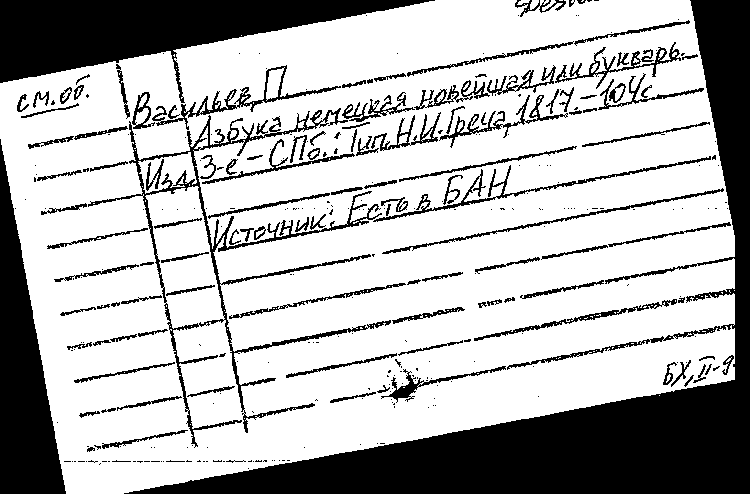 см. об.
Васильев, П.
Азбука немецкая новейшая или букварь.
Изд. 3-е. – СПб.: Тип. Н.И. Греча, 1817. – 104 с.
Источник: Есть в БАН
БХ, II-9